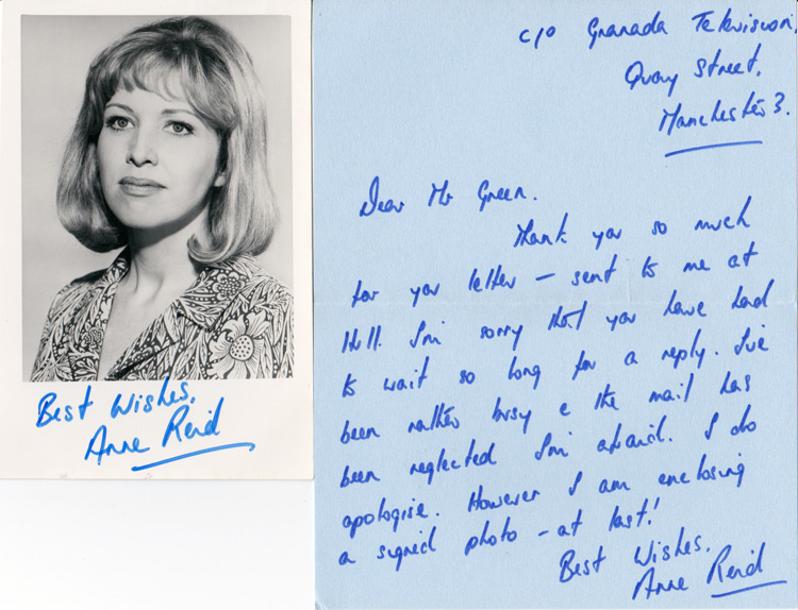 Best Wishes,
Anne Reid
c/o Granada Television,
Quay Street,
Manchester 3.
Dear Mr Green.
Thank you so much
for your letter – sent to me at
Hull. I'm sorry that you have had
to wait so long for a reply. I've
been rather busy & the mail has
been neglected I'm afraid. I do
apologise. However I am enclosing
a signed photo – at last!
Best Wishes,
Anne Reid